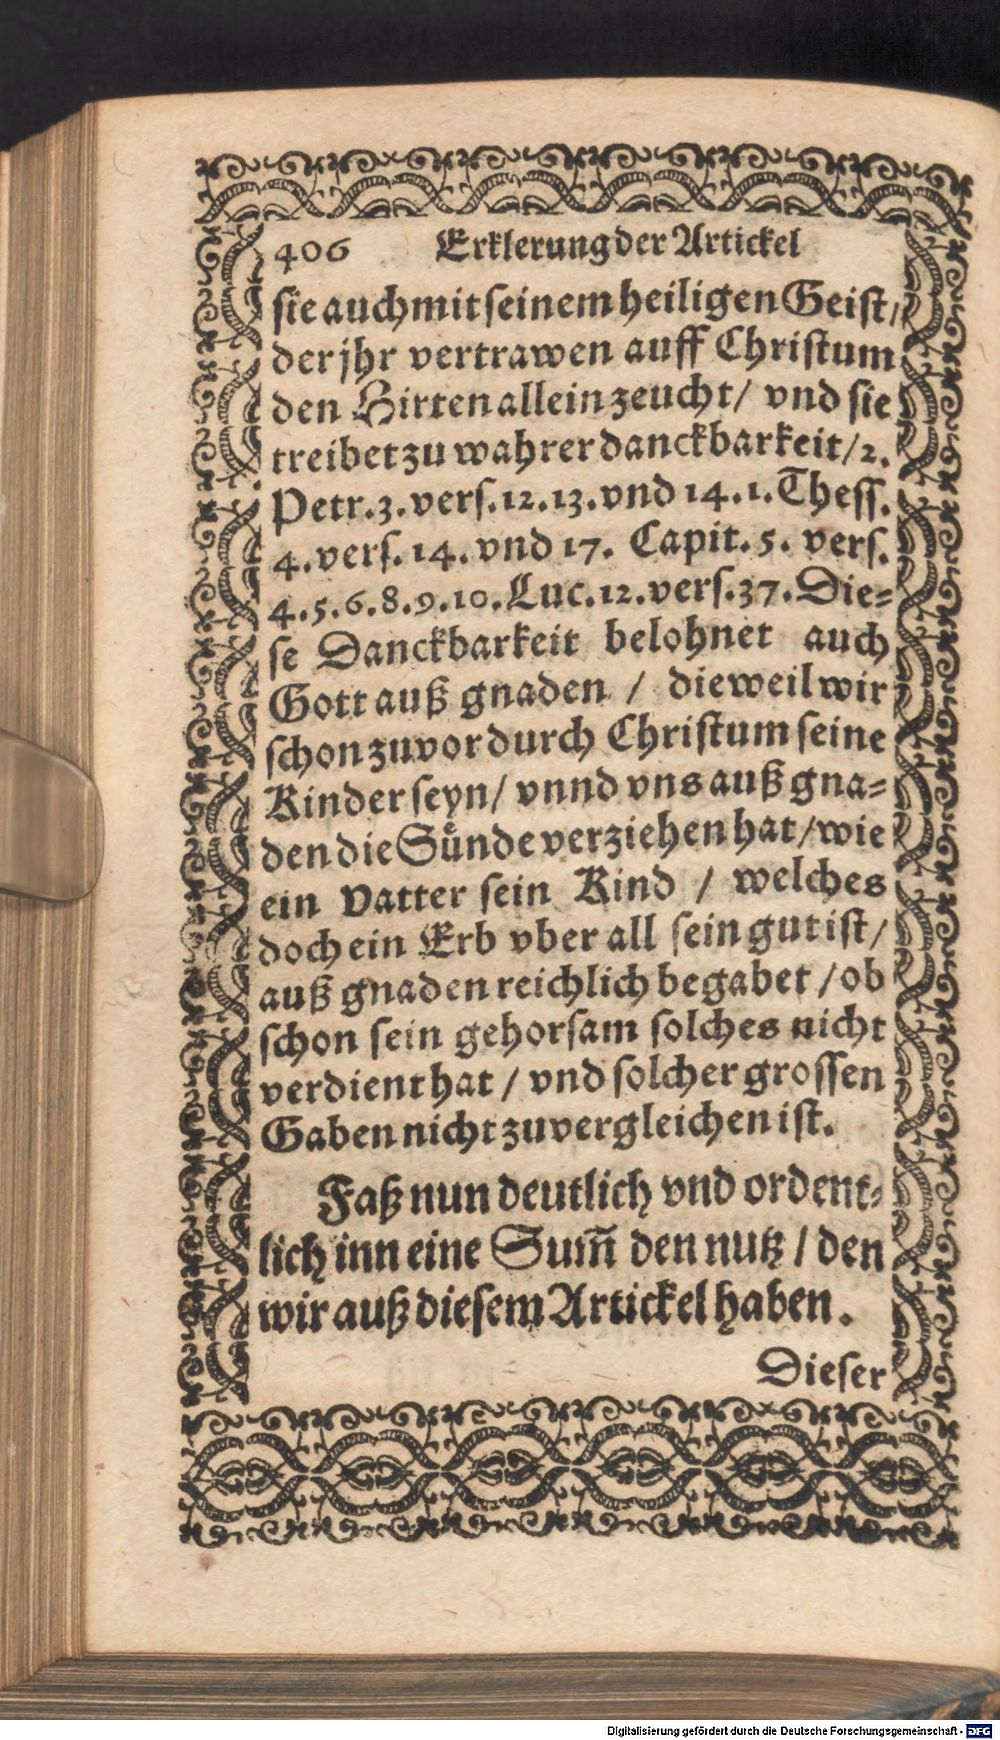 406 Erklerung der Artickel
sie auch mit seinem heiligen Geist /
der jhr vertrawen auff Christum
den Hirten allein zeucht / vnd sie
treibet zu wahrer danckbarkeit / 2.
Petr. 3. vers. 12. 13. vnd 14. 1. Thess.
4. vers. 14. vnd 17. Capit. 5. vers.
4. 5. 6. 8. 9. 10. Luc. 12. vers. 37. Die=
se Danckbarkeit belohnet auch
Gott auß gnaden / dieweil wir
schon zuvor durch Christum seine
Kinder seyn / vnnd vns auß gna=
den die Suͤnde verziehen hat / wie
ein Vatter sein Kind / welches
doch ein Erb vber all sein gut ist /
auß gnaden reichlich begabet / ob
schon sein gehorsam solches nicht
verdient hat / vnd solcher grossen
Gaben nicht zuvergleichen ist.
Faß nun deutlich vnd ordent=
lich inn eine Sum̃ den nutz / den
wir auß diesem Artickel haben.
Dieser
Digitalisierung gefördert durch die Deutsche Forschungsgemeinschaft - DFG